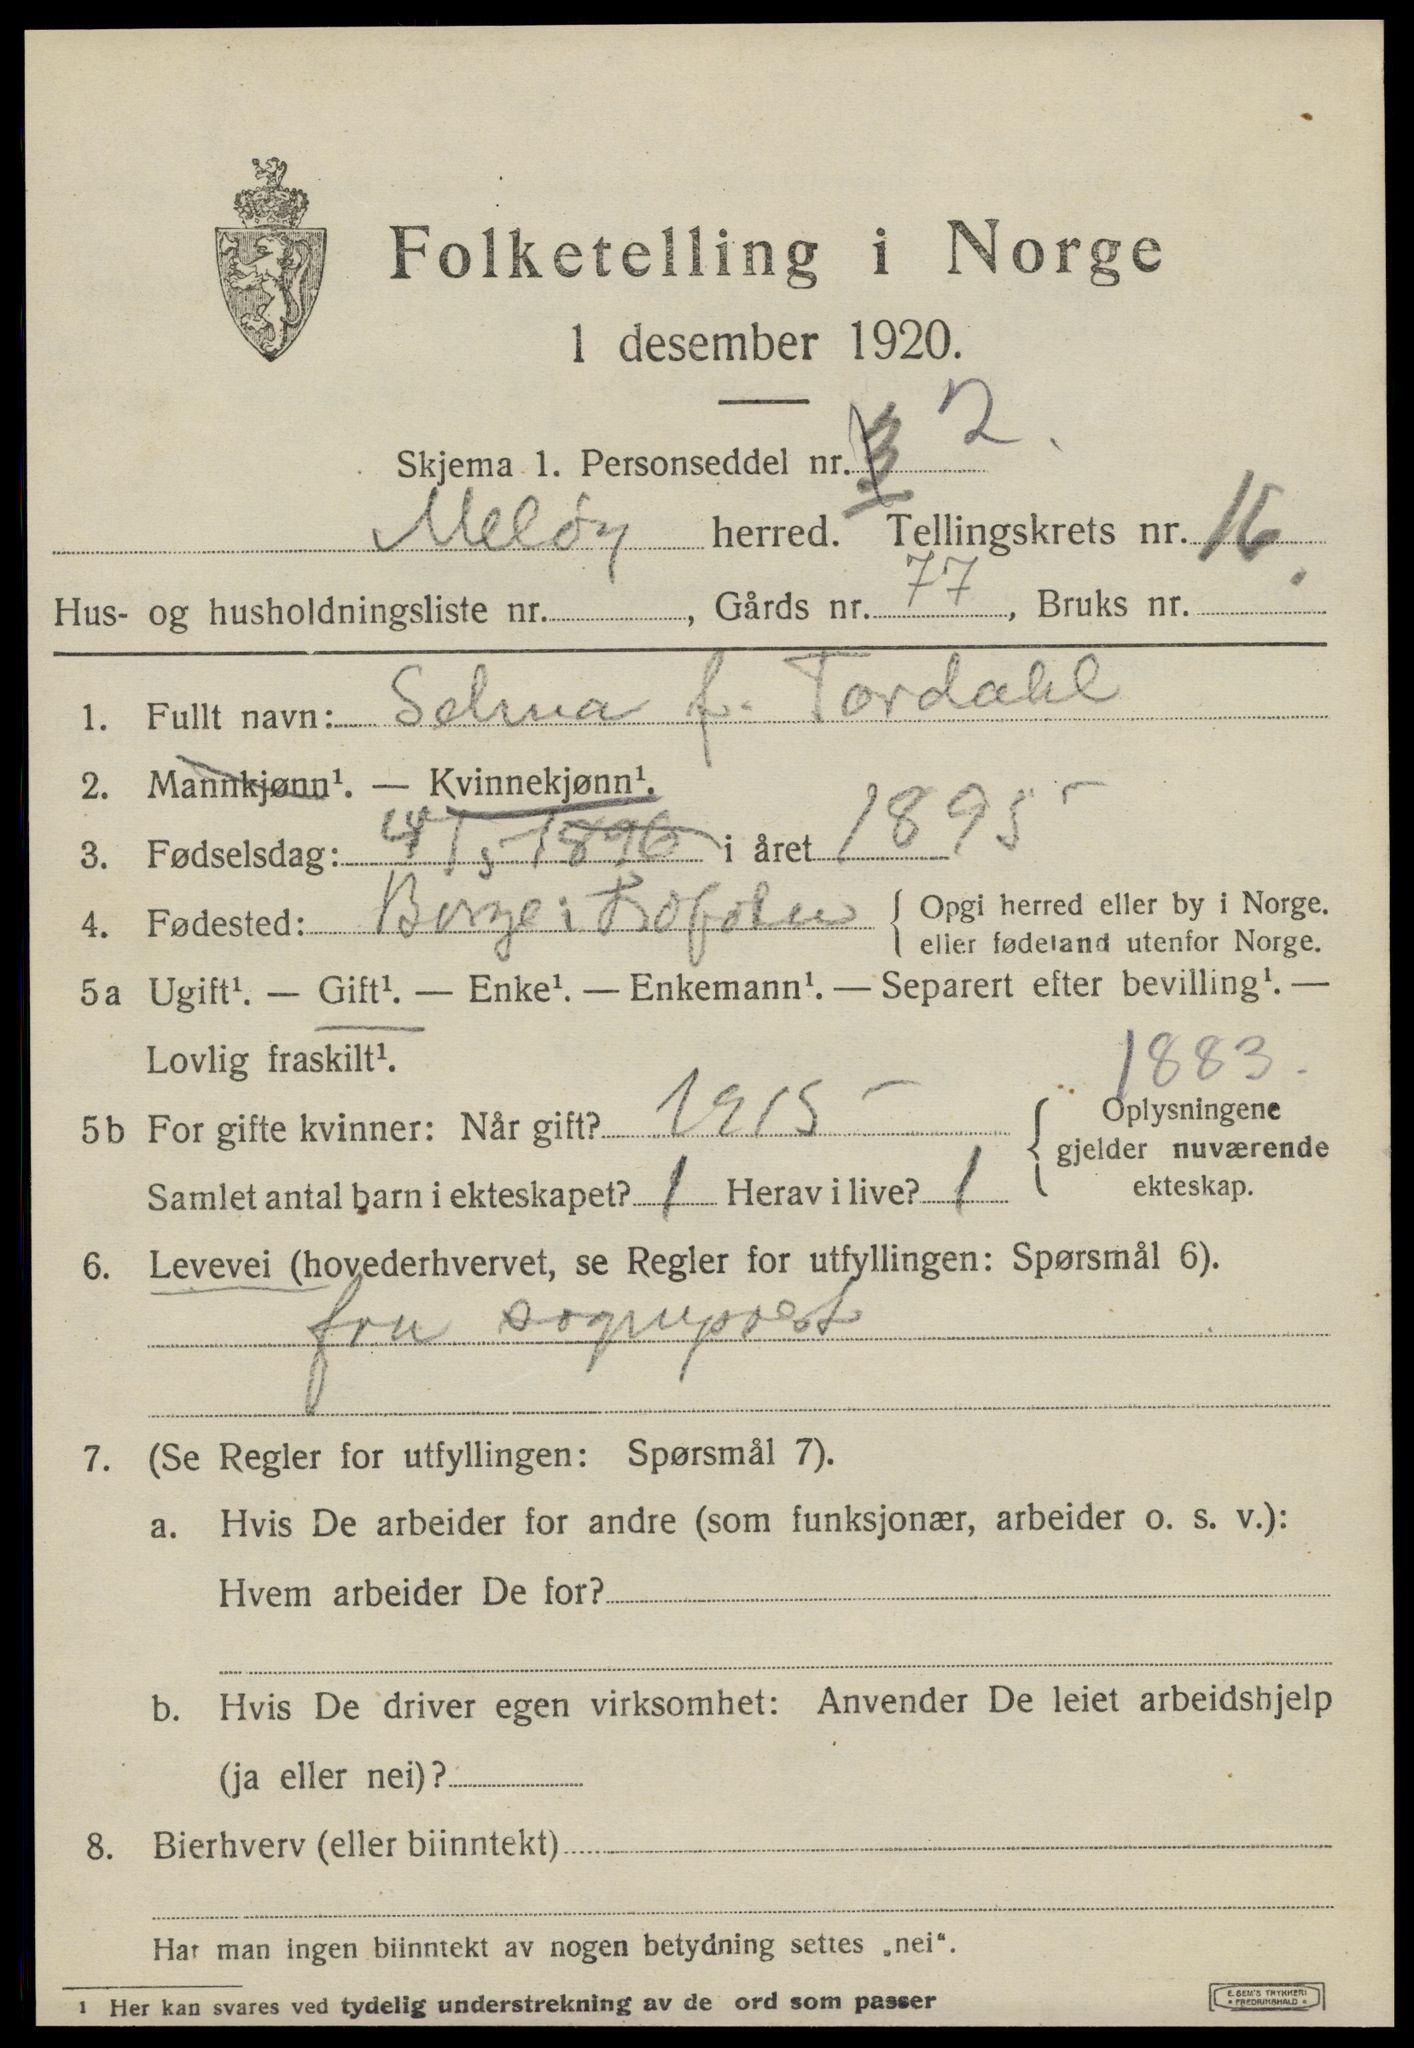 Folketelling i Norge
1 desember 1920.
Skjema 1. Personseddel nr. 3 2.
Meløy herred. Tellingskrets nr. 16.
Hus- og husholdningsliste nr. , Gårds nr. 77, Bruks nr.
1. Fullt navn: Selma f. Tordahl
2. Mannkjønn¹. — Kvinnekjønn¹.
3. Fødselsdag: 4/5 1896 i året 1895
4. Fødested: Borge i Lofoten { Opgi herred eller by i Norge.
eller fødeland utenfor Norge.
5a Ugift¹. — Gift¹. — Enke¹. — Enkemann¹. — Separert efter bevilling¹. —
Lovlig fraskilt¹.
1883.
5b For gifte kvinner: Når gift? 1915 { Oplysningene
gjelder nuværende
Samlet antal barn i ekteskapet? 1 Herav i live? 1 ekteskap.
6. Levevei (hovederhvervet, se Regler for utfyllingen: Spørsmål 6).
fru sogneprest
7. (Se Regler for utfyllingen: Spørsmål 7).
a. Hvis De arbeider for andre (som funksjonær, arbeider o. s. v.):
Hvem arbeider De for?
b. Hvis De driver egen virksomhet: Anvender De leiet arbeidshjelp
(ja eller nei)?
8. Bierhverv (eller biinntekt)
Har man ingen biinntekt av nogen betydning settes „nei“.
1 Her kan svares ved tydelig understrekning av de ord som passer
E. SEM'S TRYKKERI
* FREDRIKSHALD *